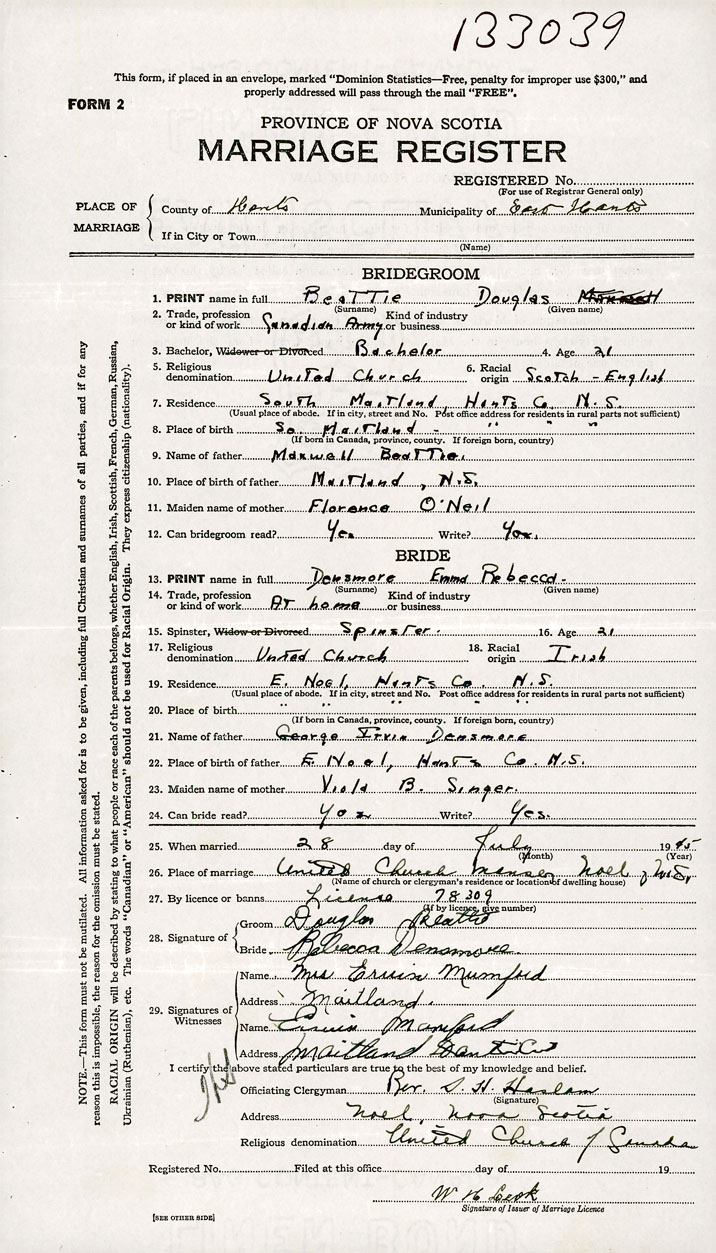 133039
This form, if placed in an envelope, marked "Dominion Statistics—Free, penalty for improper use $300," and
properly addressed will pass through the mail "FREE".
FORM 2
PROVINCE OF NOVA SCOTIA
MARRIAGE REGISTER
REGISTERED No.
(For use of Registrar General only)
PLACE OF MARRIAGE
County of Hants Municipality of East Hants
If in City or Town
(Name)
BRIDEGROOM
1. PRINT name in full Beattie Douglas
(Surname) (Given name)
2. Trade, profession or kind of work Canadian Army Kind of industry or business
3. Bachelor, Widower or Divorced Bachelor 4. Age 21
5. Religious denomination United Church 6. Racial origin Scotch - English
7. Residence South Maitland, Hants Co. N.S.
(Usual place of abode. If in city, street and No. Post office address for residents in rural parts not sufficient)
8. Place of birth So. Maitland - " " "
(If born in Canada, province, county. If foreign born, country)
9. Name of father Maxwell Beattie.
10. Place of birth of father Maitland, N.S.
11. Maiden name of mother Florence O'Neil
12. Can bridegroom read? Yes Write? Yes.
BRIDE
13. PRINT name in full Densmore Emma Rebecca -
(Surname) (Given name)
14. Trade, profession or kind of work At home Kind of industry or business
15. Spinster, Widow or Divorced Spinster. 16. Age 21
17. Religious denomination United Church 18. Racial origin Irish
19. Residence E. Noel, Hants Co N.S.
(Usual place of abode. If in city, street and No. Post office address for residents in rural parts not sufficient)
20. Place of birth " " " " "
(If born in Canada, province, county. If foreign born, country)
21. Name of father George Irvin Densmore
22. Place of birth of father E. Noel, Hants Co. N.S.
23. Maiden name of mother Viola B. Singer.
24. Can bride read? Yes Write? Yes.
25. When married 28 day of July 1945
(Month) (Year)
26. Place of marriage United Church manse, Noel, N.S.
(Name of church or clergyman's residence or location of dwelling house)
27. By licence or banns License 78309
(If by licence, give number)
28. Signature of
Groom Douglas Beattie
Bride Rebecca Densmore
29. Signatures of Witnesses
Name Mrs Ervin Mumford
Address Maitland.
Name Ervin Mumford
Address Maitland Hants Co
I certify the above stated particulars are true to the best of my knowledge and belief.
Officiating Clergyman Rev. S. H. Haslam
(Signature)
Address Noel, Nova Scotia
Religious denomination United Church of Canada
Registered No. Filed at this office day of 19
W H
Signature of Issuer of Marriage Licence
[SEE OTHER SIDE]
NOTE.—This form must not be mutilated. All information asked for is to be given, including full Christian and surnames of all parties, and if for any
reason this is impossible, the reason for the omission must be stated.
RACIAL ORIGIN will be described by stating to what people or race each of the parents belongs, whether English, Irish, Scottish, French, German, Russian,
Ukrainian (Ruthenian), etc. The words "Canadian" or "American" should not be used for Racial Origin. They express citizenship (nationality).